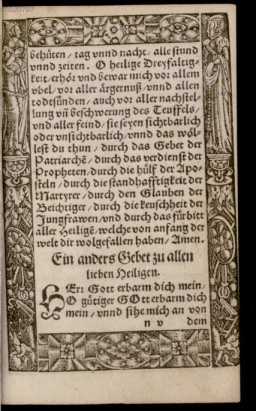 behüten / tag vnnd nacht / alle stund
vnnd zeiten. O heilige Dreyfaltig-
keit / erhör vnd bewar mich vor allem
vbel / vor aller ärgernuß / vnnd allen
todtsünden / auch vor aller nachstel-
lung vñ beschwerung des Teuffels /
vnd aller feind / sie seyen sichtbarlich
oder vnsichtbarlich / vnnd das wöl-
lest du thun / durch das Gebet der
Patriarchẽ / durch das verdienst der
Propheten / durch die hülf der Apo-
steln / durch die standhafftigkeit der
Martyrer / durch den Glauben der
Beichtiger / durch die keuschheit der
Jungfrawen / vnd durch das fürbitt
aller Heiligẽ / welche von anfang der
welt dir wolgefallen haben / Amen.
Ein anders Gebet zu allen
lieben Heiligen.
HErr Gott erbarm dich mein /
O gütiger GOtt erbarm dich
mein / vnnd sihe mich an von
n v dem